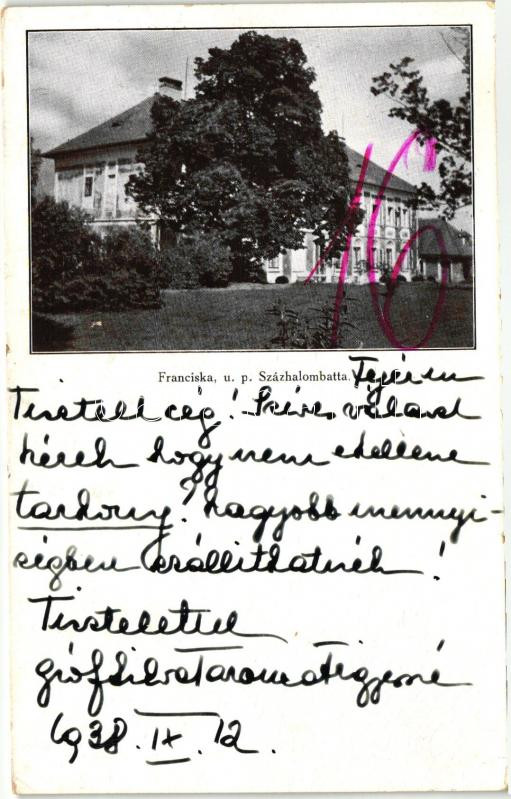 16
Franciska, u. p. Százhalombatta. Fejér m
Tisztelt cég! Szíves választ
kérek hogy nem kellene
tárkony? nagyobb mennyi-
ségben szállíthatnék!
Tisztelettel
gróf
1938. IX. 12.